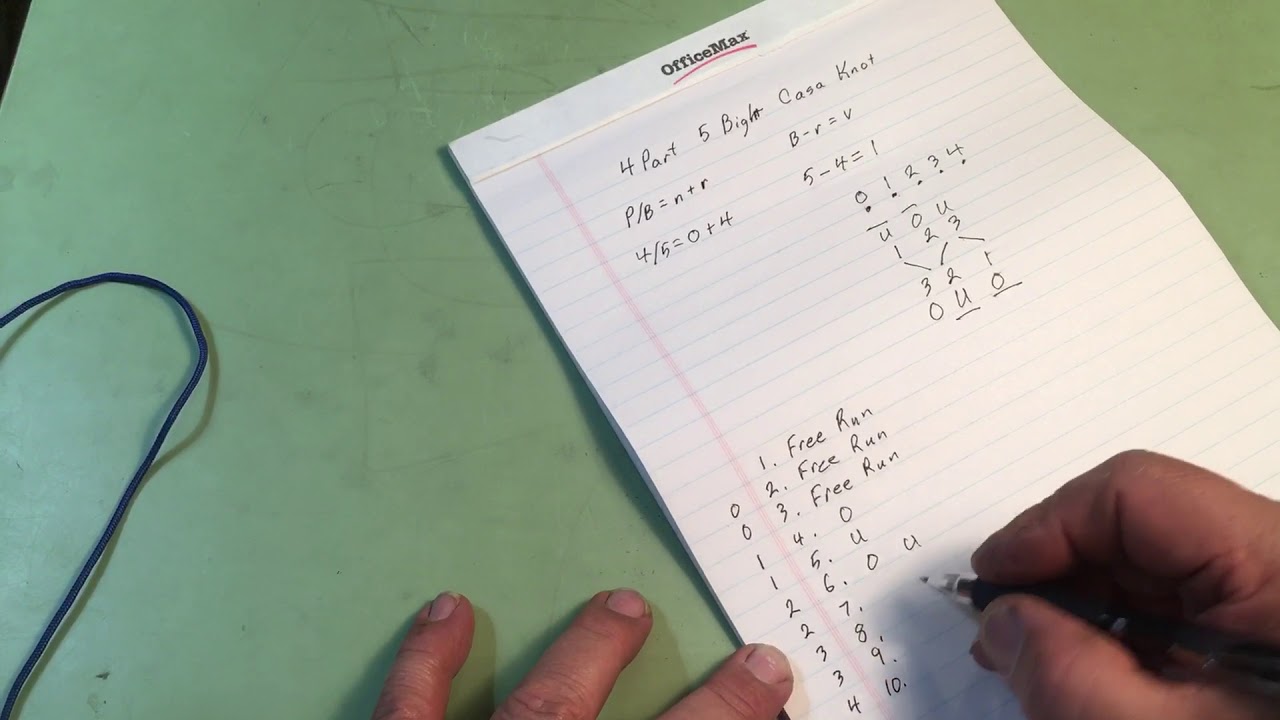 OfficeMax
4 Part 5 Bight Casa Knot
P/B = n + r
B - r = v
4/5 = 0 + 4
5 - 4 = 1
0 1 2 3 4
u o u
1 2 3
3 2 1
0 u 0
1. Free Run
2. Free Run
0 3. Free Run
0 4. O
1 5. u
1 6. O u
2 7.
2 8.
3 9.
3 10.
4